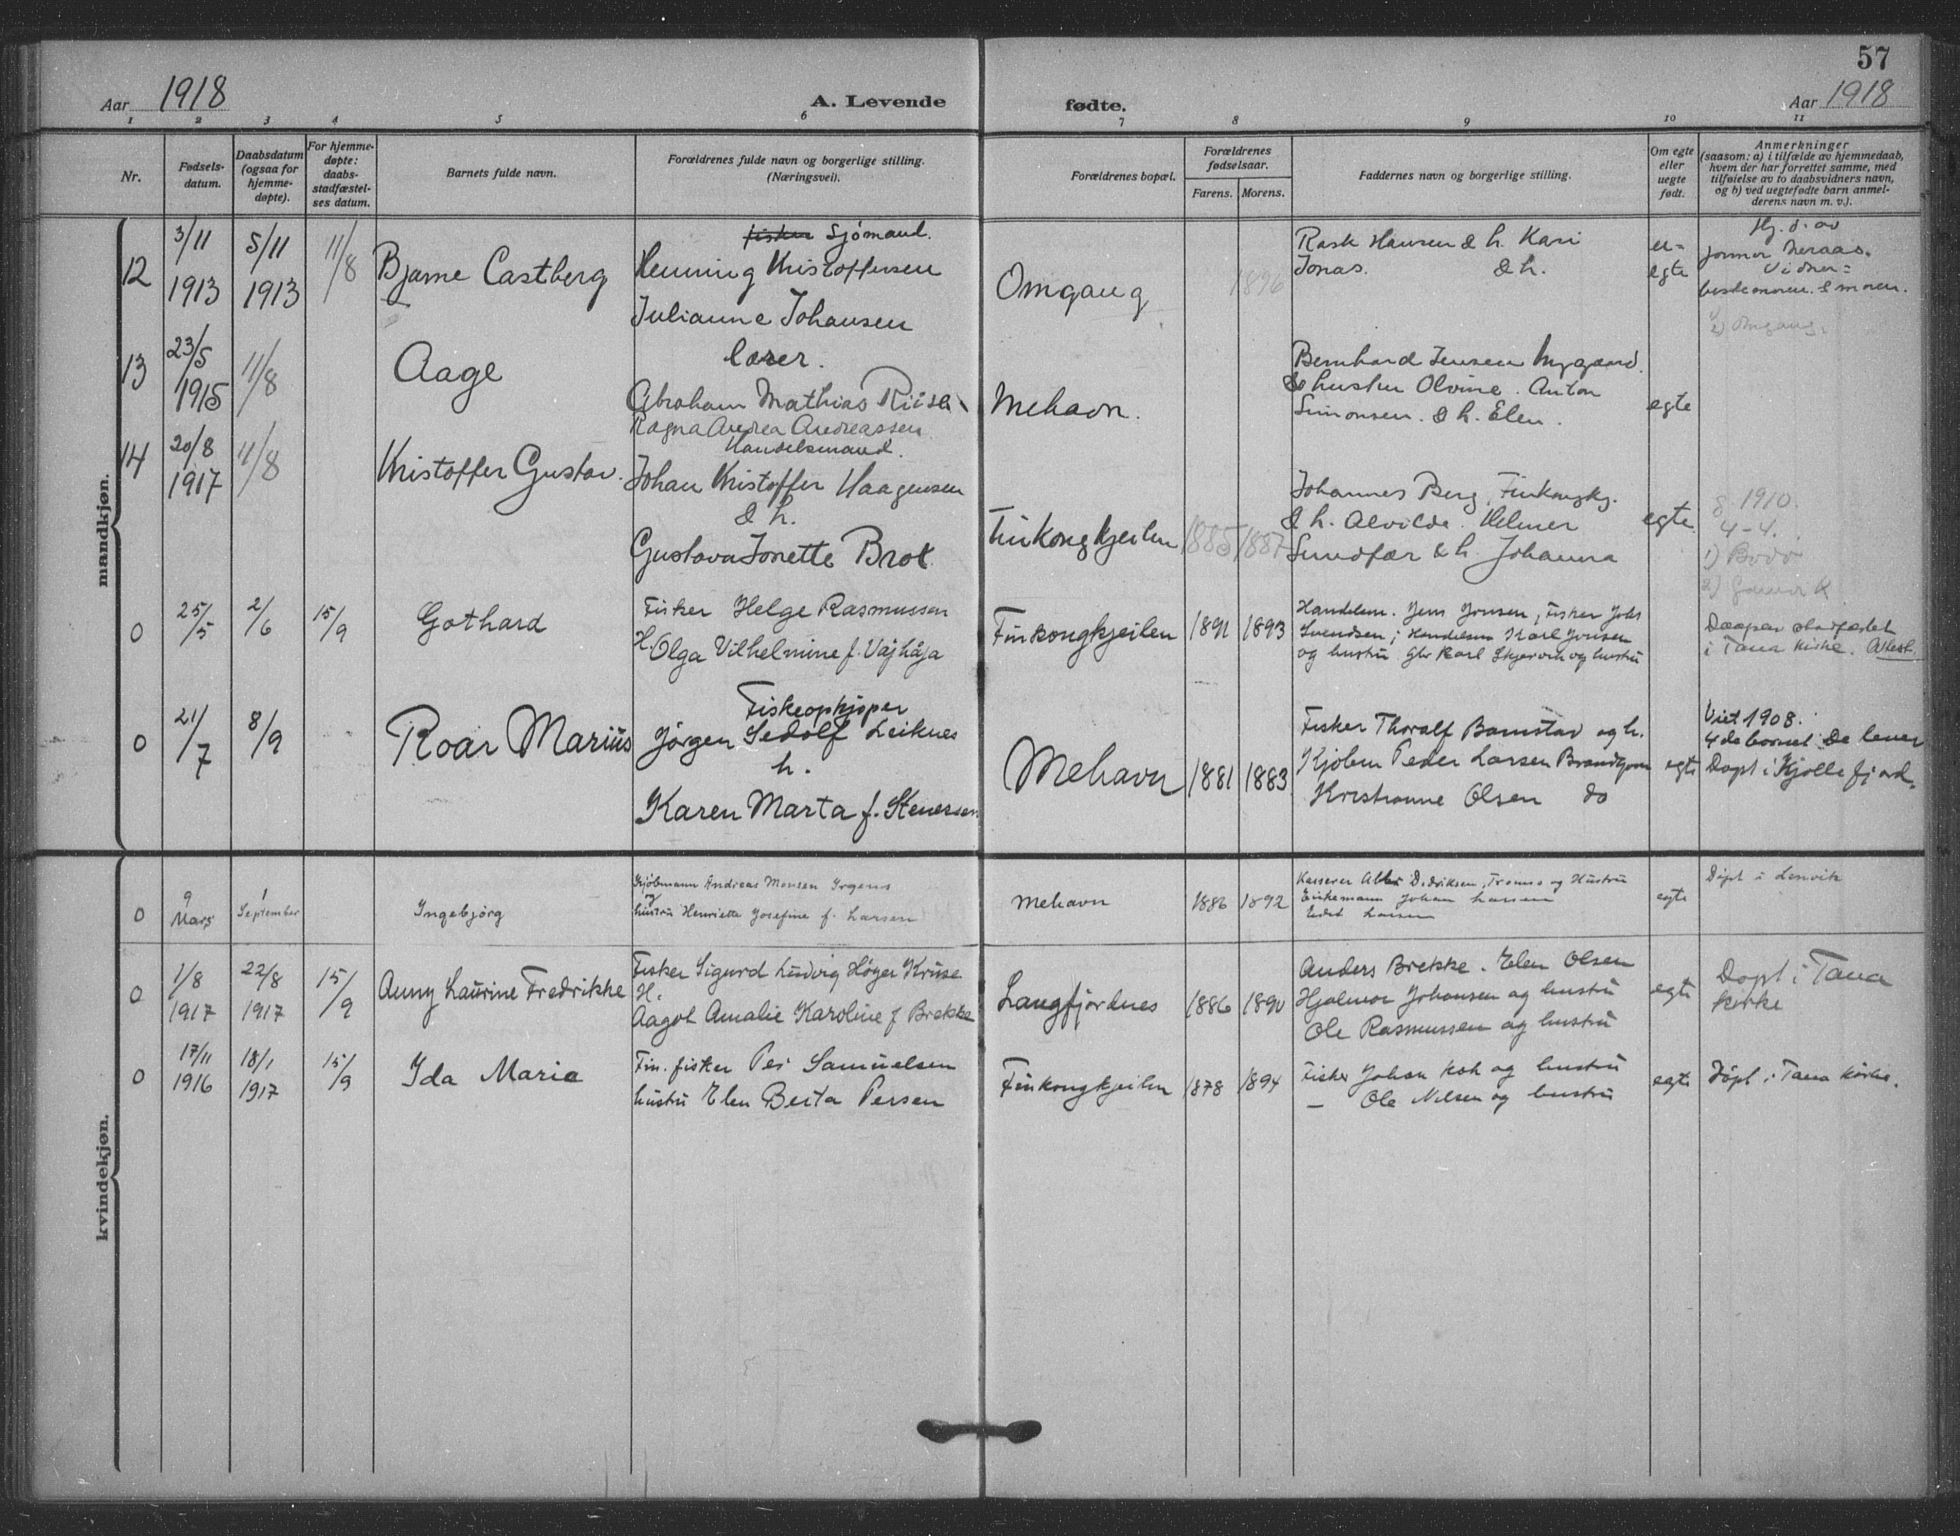 57
Aar 1918
A. Levende fødte.
Aar 1918
1 2 3 4 5 6 7 8 9 10 11
Nr.
Fødsels-
datum.
Daabsdatum
(ogsaa for
hjemme-
døpte).
For hjemme-
døpte:
daabs-
stadfæstel-
ses datum.
Barnets fulde navn.
Forældrenes fulde navn og borgerlige stilling.
(Næringsvei).
Forældrenes bopæl.
Forældrenes
fødselsaar.
Farens. Morens.
Faddernes navn og borgerlige stilling.
Om egte
eller
uegte
født.
Anmerkninger
(saasom: a) i tilfælde av hjemmedaab,
hvem der har forrettet samme, med
tilføielse av to daabsvidners navn,
og b) ved uegtefødte barn anmel-
derens navn m. v.).
mandkjøn.
12
3/11
1913
5/11
1913
11/8
Bjarne Castberg
fisker Sjømand.
Henning Kristoffersen
Julianne Johansen
Omgang
1896
Rask Hansen & h. Kari
Jonas. & h.
u-
egte
Hj. d. av
jormor Neraas.
Vidner=
bestemoren & moren.
2) Omgang.
13
23/5
1915
11/8
Aage
lærer.
Abraham Mathias
Ragna Andrea Andreassen
Mehavn.
Bernhard Jensen
& hustru Olvine. Anton
Simonsen. & h. Elen.
egte
14
20/8
1917
11/8
Kristoffer Gustav.
Handelsmand.
Johan Kristoffer Haagensen
& h.
Gustava Jonette Brox
Finkongkjeilen
1885 1887
Johannes Berg, Finkongkj.
& h. Alvilde. Helmer
Sundfær & h. Johanna
egte
g 1910.
4-4.
1) Bodø
2)
0
25/5
2/6
15/9
Gothard
Fisker Helge Rasmussen
H. Olga Vilhelmine f.
Finkongkjeilen
1891 1893
Handelsm. Jens Jensen, Fisker
Svendsen; Handelsm Karl Jensen
og hustru Gbr Karl og hustru
Daapen stadfæstet
i Tana kirke. Attest
0
21/7
8/9
Roar Marius
Fiskeopkjøper
Jørgen Sedolf Leiknes
h.
Karen Marta f. Stenersen
Mehavn
1881 1883
Fisker Thoralf og h.
Kjøbm Peder Larsen
Kristianne Olsen do
egte
Viet 1908.
4de barnet. De lever
Døpt i Kjøllefjord.
kvindekjøn.
0
9
Mars
1
September
Ingebjørg
Kjøbmann Andreas Monsen Irgens
og
hustru Henriette Josefine f. Larsen
Mehavn
1886 1892
Kasserer Didriksen, Tromsø og Hustru
Johan Larsen
Larsen
egte
Døpt i Lenvik
0
1/8
1917
22/8
1917
15/9
Anny Laurine Fredrikke
Fisker Sigurd Ludvig Høyer Kruse
H.
Aagot Amalie Karoline f Brekke
Langfjordnes
1886 1890
Anders Brekke. Elen Olsen
Hjalmar Johansen og hustru
Ole Rasmussen og hustru
egte
Døpt i Tana
kirke
0
17/11
1916
18/1
1917
15/9
Ida Maria
Fin. fisker Per Samuelsen
hustru Elen Berta Persen
Finkongkjeilen
1878 1894
Fisker Johan og hustru
— Ole Nilsen og hustru
egte
Døpt i Tana kirke.